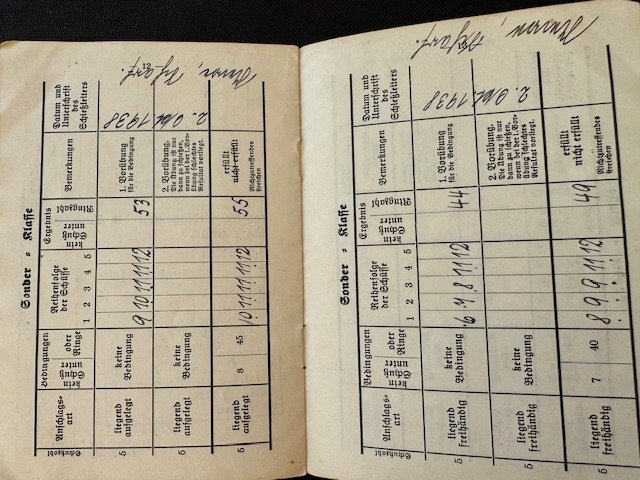 Sonder = Klasse
Schußzahl
Anschlags-
art
Bedingungen
kein
Schuß
unter
oder
Ringe
Reihenfolge
der Schüsse
1 2 3 4 5
Ergebnis
kein
Schuß
unter
Ringzahl
Bemerkungen
Datum und
Unterschrift
des
Schießleiters
5
liegend
aufgelegt
keine
Bedingung
9 10 11 11 12
53
1. Vorübung
für die Bedingung
2. Okt 1938
5
liegend
aufgelegt
keine
Bedingung
2. Vorübung.
Die Übung ist nur
dann zu schießen,
wenn bei der 1. Vor-
übung schlechtes
Resultat vorliegt.
5
liegend
aufgelegt
8
45
10 11 11 11 12
55
erfüllt
nicht erfüllt
Nichtzutreffendes
streichen
12
Sonder = Klasse
Schußzahl
Anschlags-
art
Bedingungen
kein
Schuß
unter
oder
Ringe
Reihenfolge
der Schüsse
1 2 3 4 5
Ergebnis
kein
Schuß
unter
Ringzahl
Bemerkungen
Datum und
Unterschrift
des
Schießleiters
5
liegend
freihändig
keine
Bedingung
6 7 8 11 12
44
1. Vorübung
für die Bedingung
2. Okt 1938
5
liegend
freihändig
keine
Bedingung
2. Vorübung.
Die Übung ist nur
dann zu schießen,
wenn bei der 1. Vor-
übung schlechtes
Resultat vorliegt.
5
liegend
freihändig
7
40
8 9 9 11 12
49
erfüllt
nicht erfüllt
Nichtzutreffendes
streichen